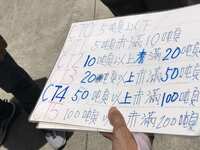 CT0 5噸以下
CT1 5噸未滿10噸
CT2 10噸以上未滿20噸
CT3 20噸以上未滿50噸
CT4 50噸以上未滿100噸
CT5 100噸以上未滿200噸